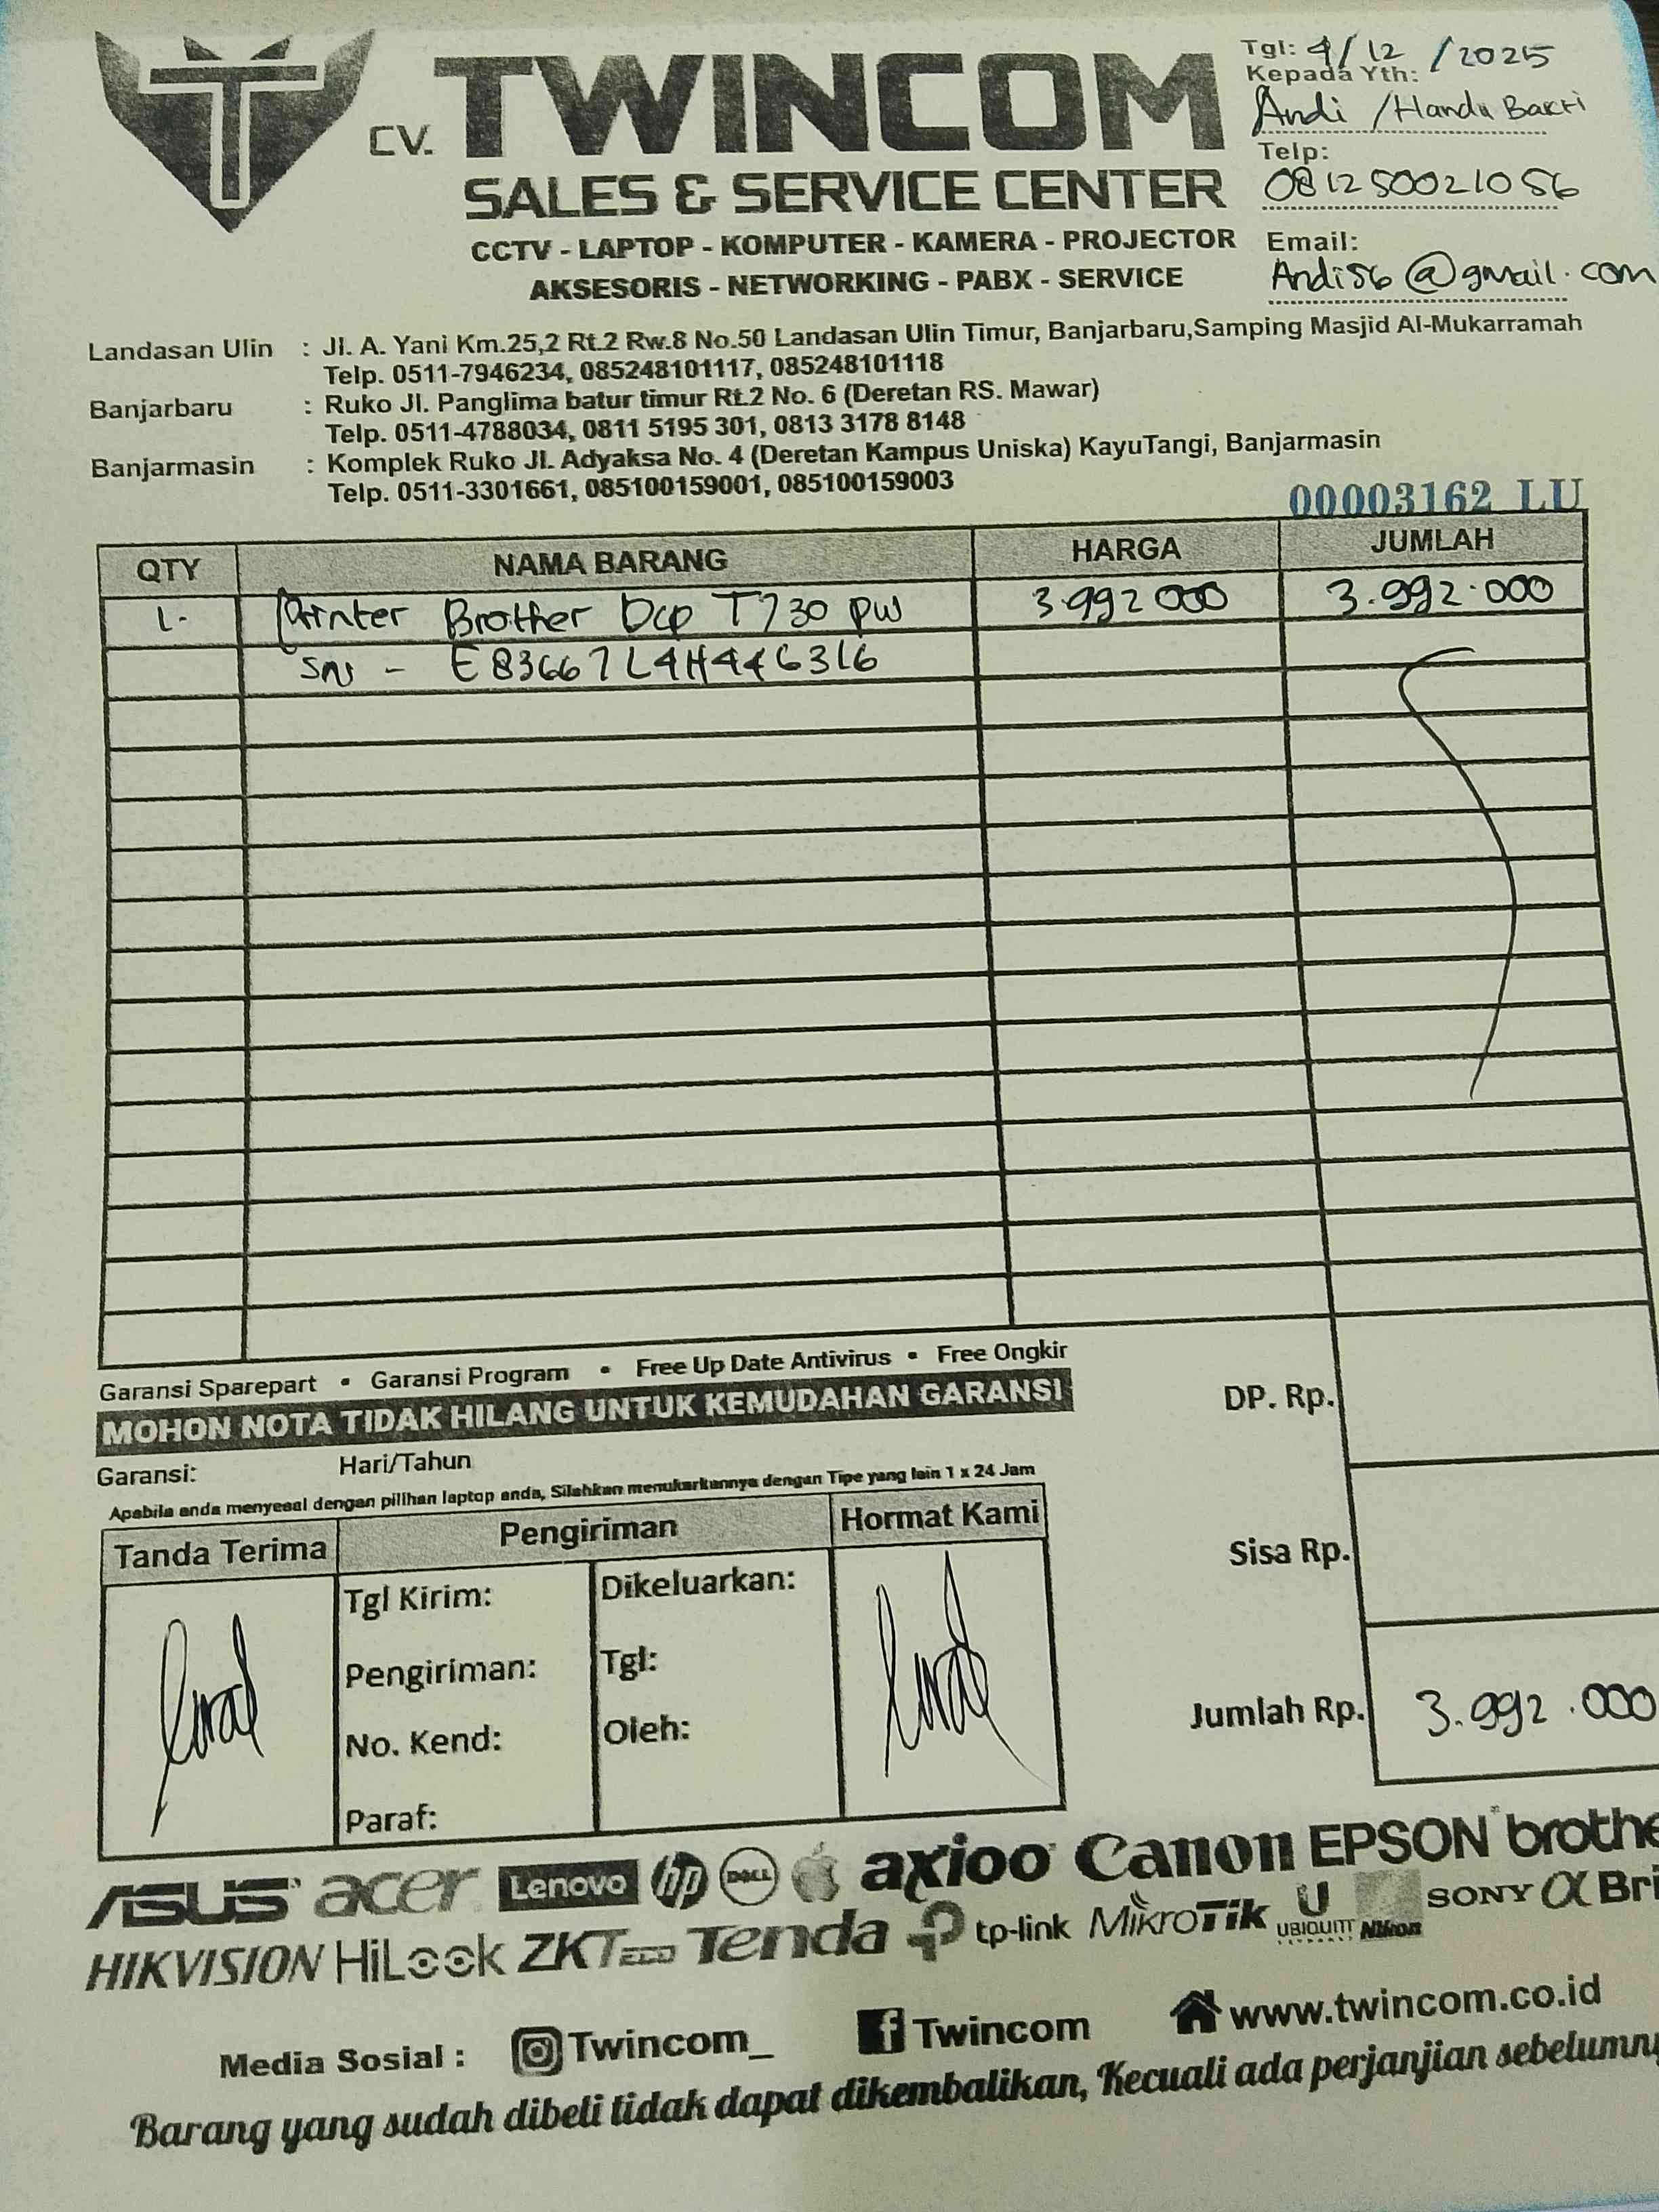 CV. TWINCOM
SALES & SERVICE CENTER
CCTV - LAPTOP - KOMPUTER - KAMERA - PROJECTOR
AKSESORIS - NETWORKING - PABX - SERVICE
Tgl: 4/12/2025
Kepada Yth:
Andi / Handu Bakti
Telp:
081250021056
Email:
Andi56@gmail.com
Landasan Ulin : Jl. A. Yani Km.25,2 Rt.2 Rw.8 No.50 Landasan Ulin Timur, Banjarbaru,Samping Masjid Al-Mukarramah
Telp. 0511-7946234, 085248101117, 085248101118
Banjarbaru : Ruko Jl. Panglima batur timur Rt.2 No. 6 (Deretan RS. Mawar)
Telp. 0511-4788034, 0811 5195 301, 0813 3178 8148
Banjarmasin : Komplek Ruko Jl. Adyaksa No. 4 (Deretan Kampus Uniska) KayuTangi, Banjarmasin
Telp. 0511-3301661, 085100159001, 085100159003
00003162 LU
QTY NAMA BARANG HARGA JUMLAH
1. Printer Brother Dcp T730 pw 3.992 000 3.992.000
SN - E83667L4H446316
Garansi Sparepart • Garansi Program • Free Up Date Antivirus • Free Ongkir
MOHON NOTA TIDAK HILANG UNTUK KEMUDAHAN GARANSI
Garansi: Hari/Tahun
Apabila anda menyesal dengan pilihan laptop anda, Silahkan menukarkannya dengan Tipe yang lain 1 x 24 Jam
DP. Rp.
Sisa Rp.
Jumlah Rp. 3.992.000
Tanda Terima Pengiriman Hormat Kami
Tgl Kirim: Dikeluarkan:
Pengiriman: Tgl:
No. Kend: Oleh:
Paraf:
ASUS acer Lenovo hp DELL axioo Canon EPSON brothe
HIKVISION HiLook ZKTeco Tenda tp-link MikroTik U UBIQUITI Nikon SONY α Bri
Media Sosial : Twincom_ Twincom www.twincom.co.id
Barang yang sudah dibeli tidak dapat dikembalikan, Kecuali ada perjanjian sebelumny